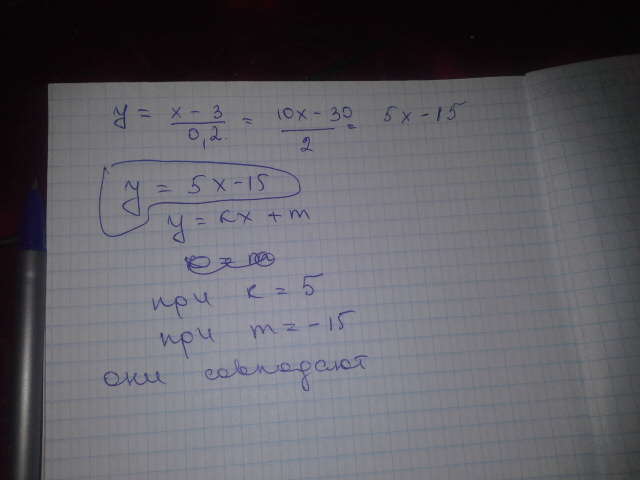 y = x - 3 / 0,2 = 10x - 30 / 2 = 5x - 15
y = 5x - 15
y = kx + m
при k = 5
при m = -15
они совпадают